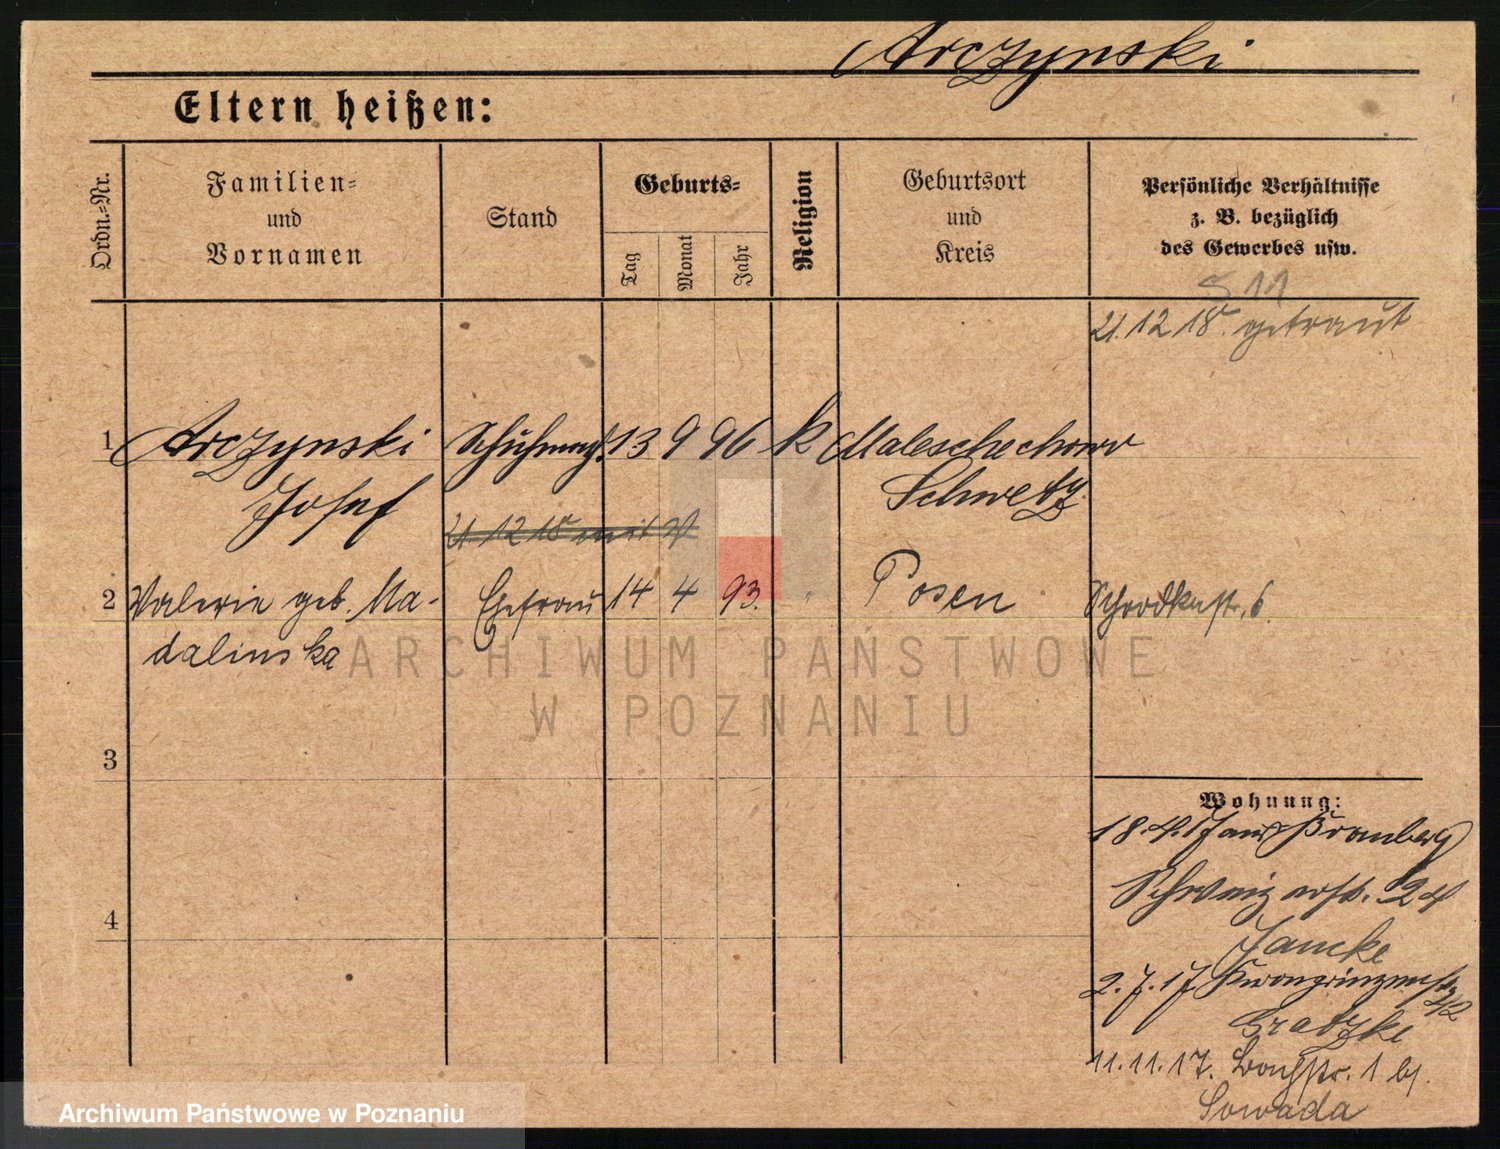 Arczynski
Eltern heißen:
Ordn.=Nr.
Familien=
und
Vornamen
Stand
Geburts=
Tag
Monat
Jahr
Religion
Geburtsort
und
Kreis
Persönliche Verhältnisse
z. B. bezüglich
des Gewerbes usw.
S 11
21.12 18. getraut
1 Arczynski Schuhm 13 9 96 k Maleschechowo
Josef Schwetz
21 12 18 mit
2 Valerie geb. Ma- Ehefrau 14 4 93. " Posen Schrodkastr. 6.
dalinska
ARCHIWUM PAŃSTWOWE
W POZNANIU
3
Wohnung:
18.4.17 aus Bromberg
Schweizerstr. 24
4
Jancke
2.7.17 Kronprinzenstr
42
Gratzke
11.11.17. 1 bj.
Sowada
Archiwum Państwowe w Poznaniu